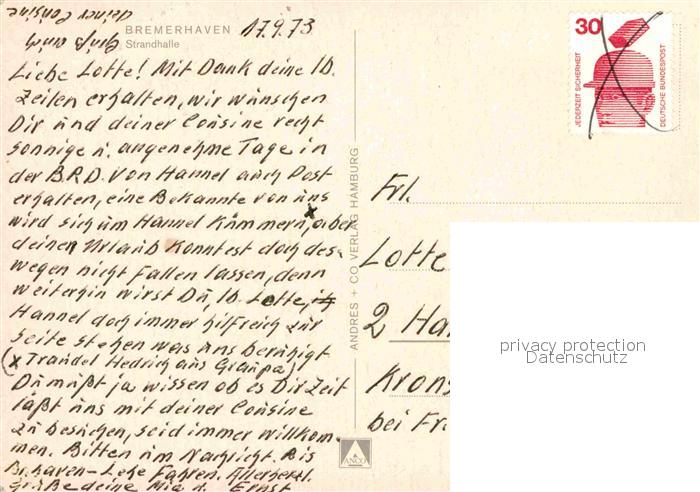 BREMERHAVEN
Strandhalle
17.9.73
Liebe Lotte! Mit Dank deine lb.
Zeilen erhalten, wir wünschen
Dir und deiner Cousine recht
sonnige u. angenehme Tage in
der B.R.D. von Hannel auch Post
erhalten, eine Bekannte von uns
wird sich um Hannel kümmern, x aber
deinen Urlaub konntest doch des-
wegen nicht fallen lassen, denn
weiterhin wirst Du, lb. Lotte,
Hannel doch immer hilfreich zur
Seite stehen was uns beruhigt
(x Traudel Hedrich aus Graupa)
Du mußt ja wissen ob es Dir Zeit
läßt uns mit deiner Cousine
zu besuchen, seid immer willkom-
men. Bitten um Nachricht. Bis
Br.haven-Lehe Fahren. Allerherzl.
Grüße deine Mia u. Ernst
Gruß auch
deiner Cousine
ANDRES + CO VERLAG HAMBURG
ANCO
30
JEDERZEIT SICHERHEIT
DEUTSCHE BUNDESPOST
Frl.
Lotte
2 Ha
Krons
bei Fr.
privacy protection
Datenschutz